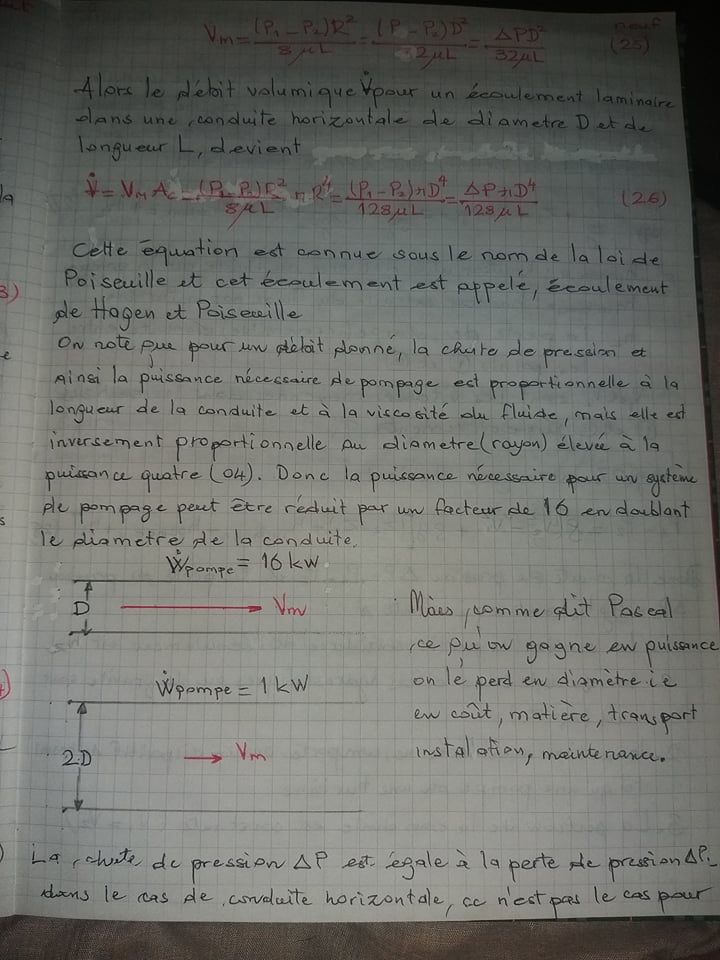 neuf
Vm = (P₁ - P₂)R²/8μL = (P - P₂)D²/32μL = ΔPD²/32μL (25)
Alors le débit volumique V̇ pour un écoulement laminaire
dans une conduite horizontale de diametre D et de
longueur L, devient
V̇ = Vm Ac = (P₁ - P₂)R²/8μL π R⁴ = (P₁ - P₂)πD⁴/128μL = ΔPπD⁴/128μL (26)
Cette équation est connue sous le nom de la loi de
Poiseuille et cet écoulement est appelé, écoulement
de Hagen et Poiseuille
On note que pour un débit donné, la chute de pression et
Ainsi la puissance nécessaire de pompage est proportionnelle à la
longueur de la conduite et à la viscosité du fluide, mais elle est
inversement proportionnelle au diametre (rayon) élevée à la
puissance quatre (04). Donc la puissance nécessaire pour un système
de pompage peut être réduit par un facteur de 16 en doublant
le diametre de la conduite.
Ẇpompe = 16 kW
D
Vm
Ẇpompe = 1 kW
2D
Vm
Mais, comme dit Pascal
ce qu'on gagne en puissance
on le perd en diamètre i.e
en coût, matière, transport
instalation, maintenance.
La chute de pression ΔP est égale à la perte de pression ΔPL
dans le cas de conduite horizontale, ce n'est pas le cas pour